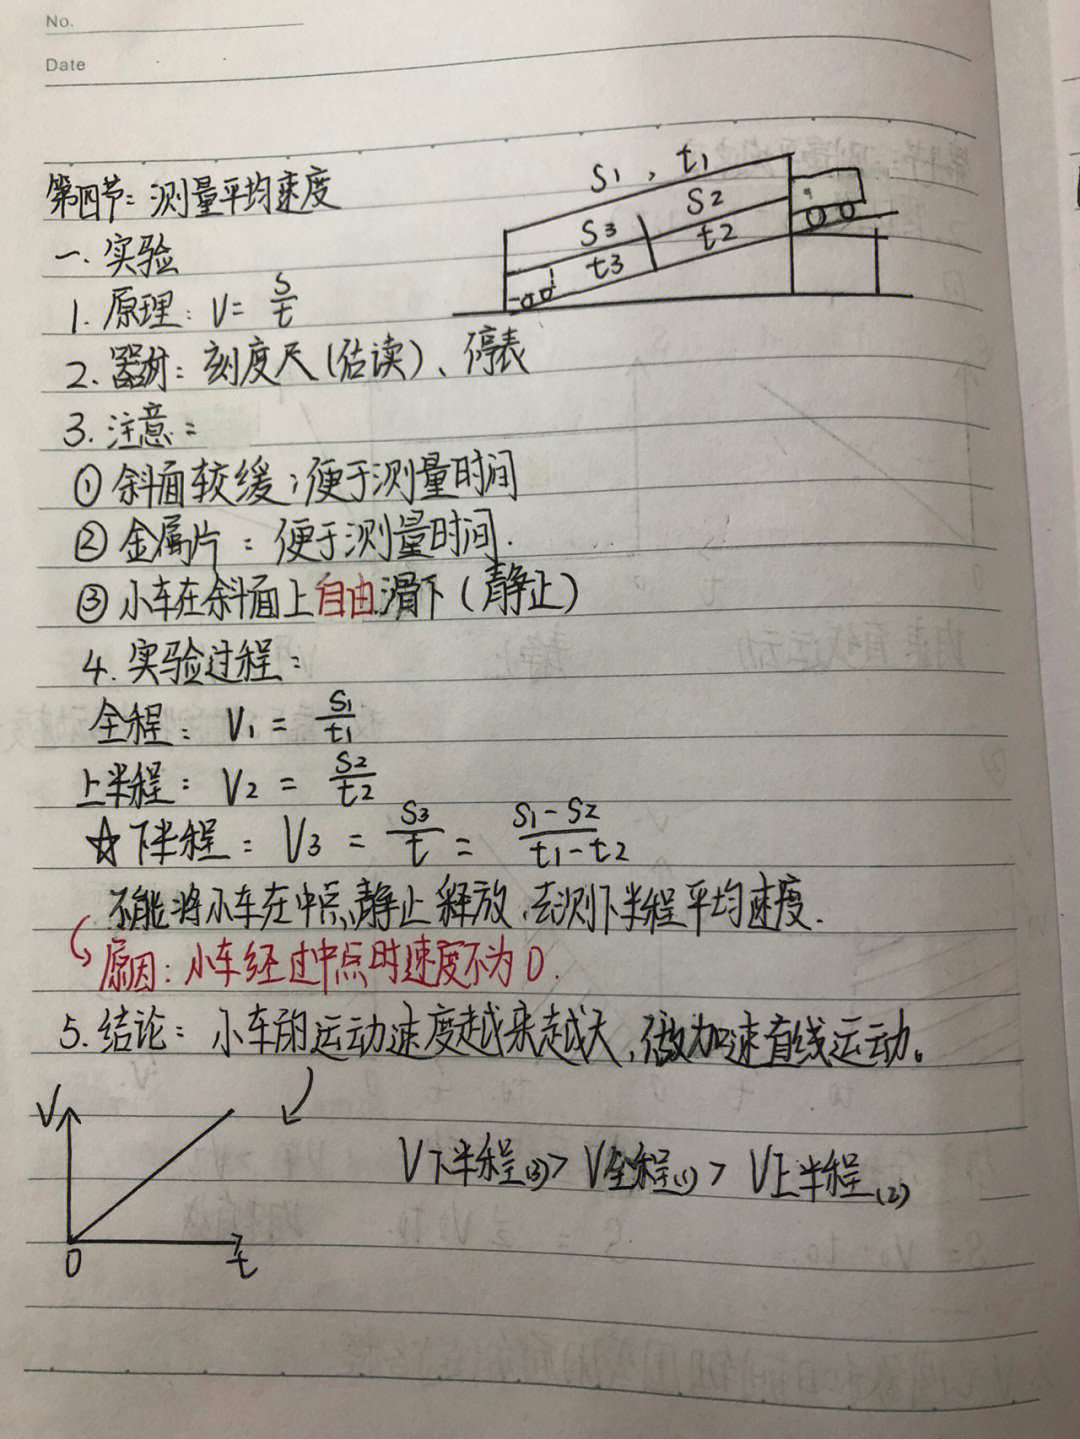 No.
Date
第四节：测量平均速度
S1，t1
S2
S3
t2
t3
一.实验
1.原理：V=S/t
2.器材：刻度尺(估读)、停表
3.注意：
①斜面较缓：便于测量时间
②金属片：便于测量时间.
③小车在斜面上自由滑下(静止)
4.实验过程：
全程：V1=S1/t1
上半程：V2=S2/t2
☆下半程：V3=S3/t=S1-S2/t1-t2
不能将小车在中点静止释放,去测下半程平均速度.
原因：小车经过中点时速度不为0.
5.结论：小车的运动速度越来越大,做加速直线运动。
V
V下半程(3)>V全程(1)>V上半程(2)
0
t